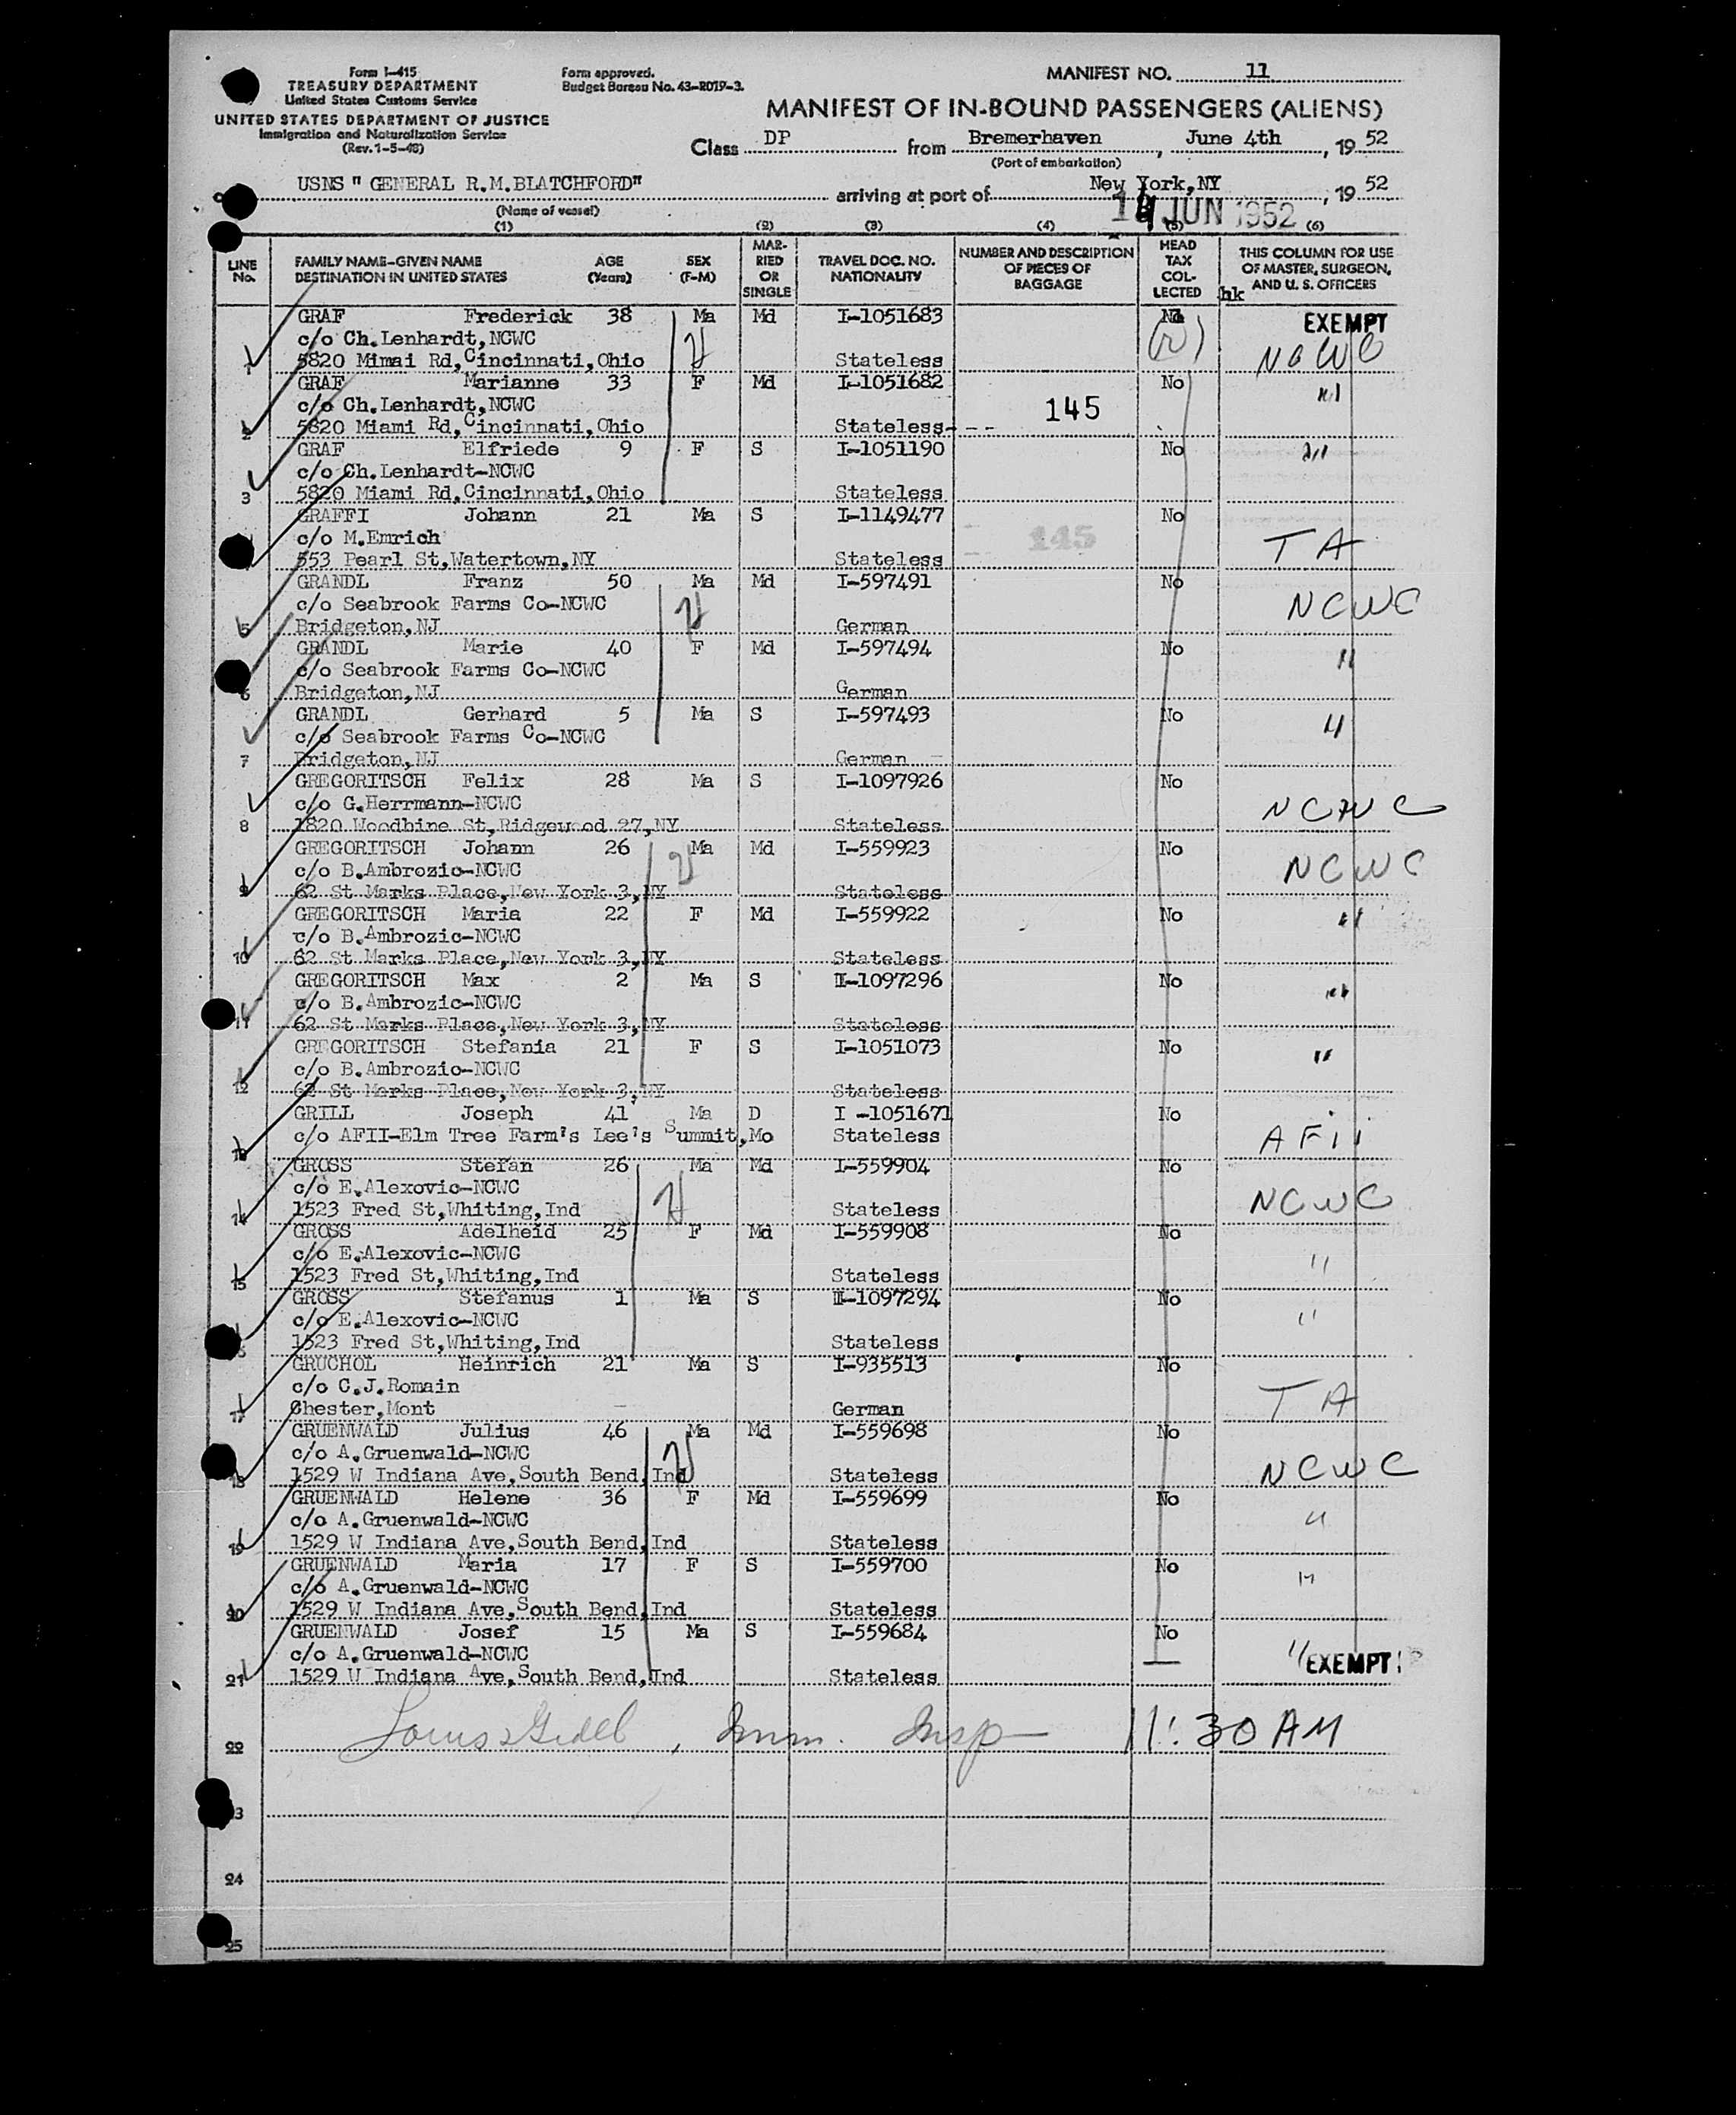 Form I-415
TREASURY DEPARTMENT
United States Customs Service
UNITED STATES DEPARTMENT OF JUSTICE
Immigration and Naturalization Service
(Rev. 1-5-48)
Form approved.
Budget Bureau No. 43-R079-3.
MANIFEST NO. 11
MANIFEST OF IN-BOUND PASSENGERS (ALIENS)
Class DP from Bremerhaven, June 4th, 19 52
(Port of embarkation)
USNS " GENERAL R.M.BLATCHFORD" arriving at port of New York,NY, 19 52
(Name of vessel)
JUN 1952
(1) (2) (3) (4) (5) (6)
LINE No. FAMILY NAME-GIVEN NAME DESTINATION IN UNITED STATES AGE (Years) SEX (F-M) MARRIED OR SINGLE TRAVEL DOC. NO. NATIONALITY NUMBER AND DESCRIPTION OF PIECES OF BAGGAGE HEAD TAX COLLECTED THIS COLUMN FOR USE OF MASTER, SURGEON, AND U. S. OFFICERS
hk
GRAF Frederick 38 Ma Md I-1051683 No EXEMPT
c/o Ch.Lenhardt,NCWC
1 5820 Mimai Rd,Cincinnati,Ohio Stateless NCWC
GRAF Marianne 33 F Md I-1051682 No "
c/o Ch.Lenhardt,NCWC 145
2 5820 Miami Rd,Cincinnati,Ohio Stateless---
GRAF Elfriede 9 F S I-1051190 No "
c/o Ch.Lenhardt-NCWC
3 5820 Miami Rd,Cincinnati,Ohio Stateless
GRAFFI Johann 21 Ma S I-1149477 No
c/o M.Emrich 145 TA
553 Pearl St,Watertown,NY Stateless
GRANDL Franz 50 Ma Md I-597491 No
c/o Seabrook Farms Co-NCWC NCWC
5 Bridgeton,NJ German
GRANDL Marie 40 F Md I-597494 No "
c/o Seabrook Farms Co-NCWC
6 Bridgeton,NJ German
GRANDL Gerhard 5 Ma S I-597493 No "
c/o Seabrook Farms Co-NCWC
7 Bridgeton,NJ German
GREGORITSCH Felix 28 Ma S I-1097926 No
c/o G.Herrmann-NCWC NCWC
8 1820 Woodbine St,Ridgewood 27,NY Stateless
GREGORITSCH Johann 26 Ma Md I-559923 No
c/o B.Ambrozic-NCWC NCWC
9 62 St Marks Place,New York 3,NY Stateless
GREGORITSCH Maria 22 F Md I-559922 No "
c/o B.Ambrozic-NCWC
10 62 St Marks Place,New York 3,NY Stateless
GREGORITSCH Max 2 Ma S I-1097296 No "
c/o B.Ambrozic-NCWC
11 62 St Marks Place,New York 3,NY Stateless
GREGORITSCH Stefania 21 F S I-1051073 No "
c/o B.Ambrozic-NCWC
12 62 St Marks Place,New York 3,NY Stateless
GRILL Joseph 41 Ma D I -1051671 No
13 c/o AFII-Elm Tree Farm's Lee's Summit,Mo Stateless AFii
GROSS Stefan 26 Ma Md I-559904 No
c/o E.Alexovic-NCWC NCWC
14 1523 Fred St,Whiting,Ind Stateless
GROSS Adelheid 25 F Md I-559908 No
c/o E.Alexovic-NCWC "
15 1523 Fred St,Whiting,Ind Stateless
GROSS Stefanus 1 Ma S I-1097294 No
c/o E.Alexovic-NCWC "
16 1523 Fred St,Whiting,Ind Stateless
GRUCHOL Heinrich 21 Ma S I-935513 No
c/o C.J.Romain TA
17 Chester,Mont German
GRUENWALD Julius 46 Ma Md I-559698 No
c/o A.Gruenwald-NCWC NCWC
18 1529 W Indiana Ave,South Bend,Ind Stateless
GRUENWALD Helene 36 F Md I-559699 No
c/o A.Gruenwald-NCWC "
19 1529 W Indiana Ave,South Bend,Ind Stateless
GRUENWALD Maria 17 F S I-559700 No
c/o A.Gruenwald-NCWC "
20 1529 W Indiana Ave,South Bend,Ind Stateless
GRUENWALD Josef 15 Ma S I-559684 No
c/o A.Gruenwald-NCWC " EXEMPT
21 1529 W Indiana Ave,South Bend,Ind Stateless
Imm. Insp 11:30 AM
22
23
24
25